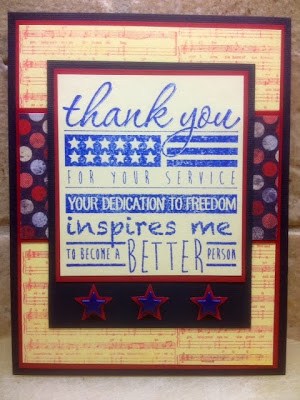 thank you
FOR YOUR SERVICE
YOUR DEDICATION TO FREEDOM
inspires me
TO BECOME A BETTER PERSON